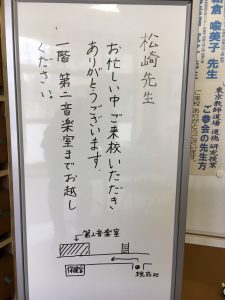 松崎先生
お忙しい中ご来校いただき
ありがとうございます。
一階 第二音楽室までお越し
ください。
第二音楽室
現在地
朝倉 喩美子 先生
東京教師道場 道徳 研究授業
ご参会の先生方